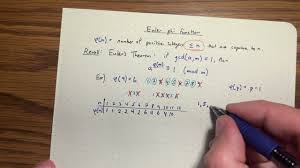 Euler phi function
φ(n) = number of positive integers ≤ n that are coprime to n
Recall: Euler's Theorem: if gcd(a,m) = 1, then
a^φ(m) ≡ 1 (mod m)
Ex) φ(9) = 6 1 2 3 4 5 6 7 8 9 φ(p) = p-1
n 1 2 3 4 5 6 7 8 9 10 11 12 1, 5,
φ(n) 1 1 2 2 4 2 6 4 6 4 10